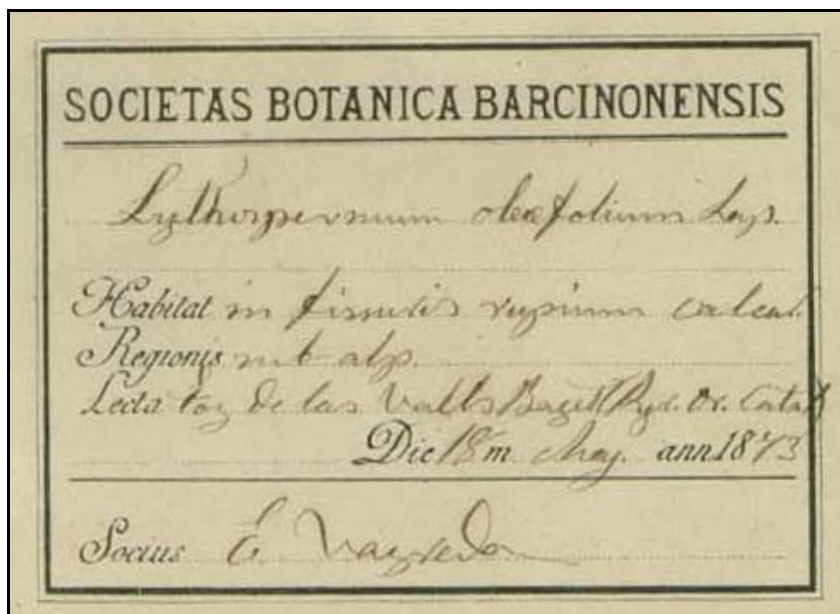 SOCIETAS BOTANICA BARCINONENSIS
Lythospermum oleæfolium Lap.
Habitat in fissuris rupium calcar.
Regionis sub alp.
Lecta de las Valls Baget Pyr. Or. Catal
Die 18 m. May. ann. 1873
Socius E. Vayreda